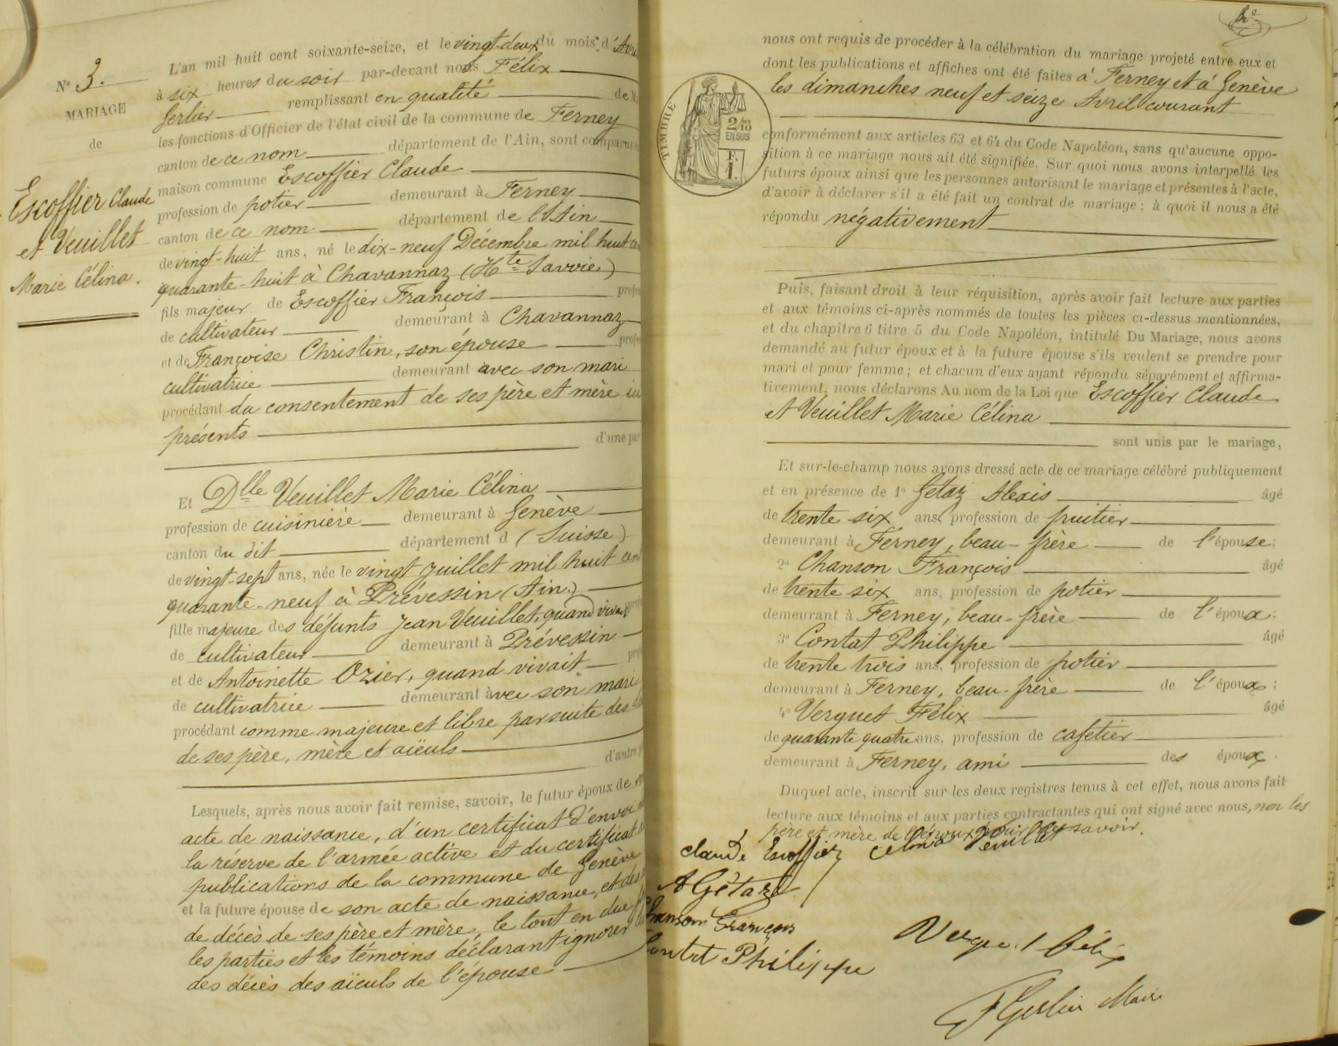 N° 3.
MARIAGE
de
Escoffier Claude
et Veuillet
Marie Célina.
L'an mil huit cent soixante-seize, et le vingt-deux du mois d'Avri
à six heures du soir par-devant nous Félix
Gerlier remplissant en qualité de M
les fonctions d'Officier de l'état civil de la commune de Ferney
canton de ce nom département de l'Ain, sont comparus
maison commune Escoffier Claude
profession de potier demeurant à Ferney
canton de ce nom département de l'Ain
de vingt-huit ans, né le dix-neuf Décembre mil huit ce
quarante-huit à Chavannaz (Hte Savoie)
fils majeur de Escoffier François profes
de cultivateur demeurant à Chavannaz
et de Françoise Christin, son épouse profes
cultivatrice demeurant avec son mari
procédant du consentement de ses père et mère ici
présents d'une par
Et Dlle Veuillet Marie Célina
profession de cuisinière demeurant à Genève
canton du dit département d (Suisse)
de vingt-sept ans, née le vingt juillet mil huit cen
quarante-neuf à Prévessin (Ain)
fille majeure des défunts Jean Veuillet, quand vivait
de cultivateur demeurant à Prévessin
et de Antoinette Ozier, quand vivait
de cultivatrice demeurant avec son mari
procédant comme majeure et libre par suite des d
de ses père, mère et aïeuls d'autre p
Lesquels, après nous avoir fait remise, savoir, le futur époux de son
acte de naissance, d'un certificat d'envoi
la réserve de l'armée active et du certificat
publications de la commune de Genève
et la future épouse de son acte de naissance, et des
de décès de ses père et mère, le tout en due
les parties et les témoins déclarant ignorer
des décès des aïeuls de l'épouse
nous ont requis de procéder à la célébration du mariage projeté entre eux et
dont les publications et affiches ont été faites à Ferney et à Genève
les dimanches neuf et seize Avril courant
TIMBRE
2/10
EN SUS
F.
1.
conformément aux articles 63 et 64 du Code Napoléon, sans qu'aucune oppo-
sition à ce mariage nous ait été signifiée. Sur quoi nous avons interpellé les
futurs époux ainsi que les personnes autorisant le mariage et présentes à l'acte,
d'avoir à déclarer s'il a été fait un contrat de mariage ; à quoi il nous a été
répondu négativement
Puis, faisant droit à leur réquisition, après avoir fait lecture aux parties
et aux témoins ci-après nommés de toutes les pièces ci-dessus mentionnées,
et du chapitre 6 titre 5 du Code Napoléon, intitulé Du Mariage, nous avons
demandé au futur époux et à la future épouse s'ils veulent se prendre pour
mari et pour femme ; et chacun d'eux ayant répondu séparément et affirma-
tivement, nous déclarons Au nom de la Loi que Escoffier Claude
et Veuillet Marie Célina
sont unis par le mariage,
Et sur-le-champ nous avons dressé acte de ce mariage célébré publiquement
et en présence de 1° Gétaz Alexis âgé
de trente six ans, profession de fruitier
demeurant à Ferney, beau-frère de l'épouse ;
2° Chanson François âgé
de trente six ans, profession de potier
demeurant à Ferney, beau-frère de l'époux ;
3° Contat Philippe âgé
de trente trois ans, profession de potier
demeurant à Ferney, beau-frère de l'époux ;
4° Verguet Félix âgé
de quarante quatre ans, profession de cafetier
demeurant à Ferney, ami des époux.
Duquel acte, inscrit sur les deux registres tenus à cet effet, nous avons fait
lecture aux témoins et aux parties contractantes qui ont signé avec nous, non les
père et mère de l'époux pour ne savoir.
claude Escoffier Celina Veuillet
A Gétaz
Chanson François
Contat Philippe
Verguet Félix
F Gerlier Maire